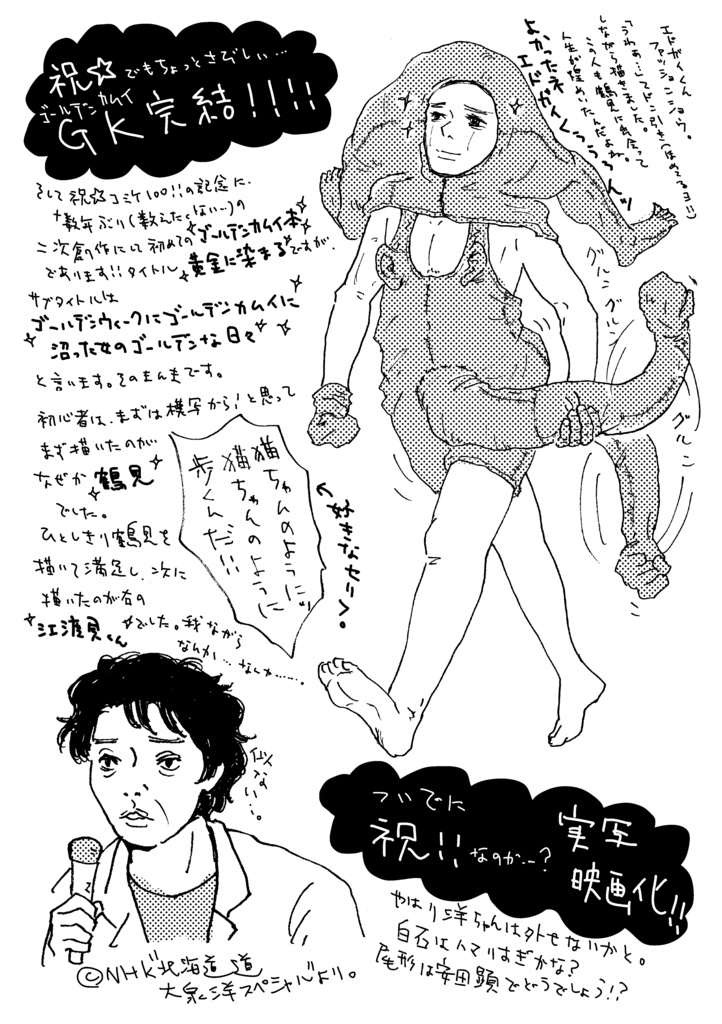 祝☆でもちょっとさびしい…
ゴールデンカムイ
GK完結!!!!
そして祝☆コミケ100!!の記念に、
十数年ぶり(数えたくない…)の
二次創作にして初めてのゴールデンカムイ本
であります!!タイトル黄金に染まるですが、
サブタイトルは
ゴールデンウィークにゴールデンカムイに
沼った女のゴールデンな日々
と言います。そのまんまです。
初心者は、まずは模写から!と思って
まず描いたのが
なぜか鶴見
でした。
ひとしきり鶴見を
描いて満足し、次に
描いたのが右の
江渡貝くん
でした。我ながら
なんか…なんか……
エドガイくん
ファッションショウ。
「うわぁ…」ってドン引き(ほめてるヨ!!)
しながら描きました。
こう人も鶴見に出会って
人生が煌めいたんだよね。
よかったネ
エドガイくぅぅんッ
グルングルン
グルン
←好きなセリフ。
猫ちゃんのようにッ
猫ちゃんのように
歩くんだ!!!
似ない…。
©NHK北海道道
大泉洋スペシャルより。
ついでに
祝!!なのか…?
実写
映画化!!
やはり洋ちゃんは外せないかと。
白石はハマりすぎかな?
尾形は安田顕でどうでしょう!?